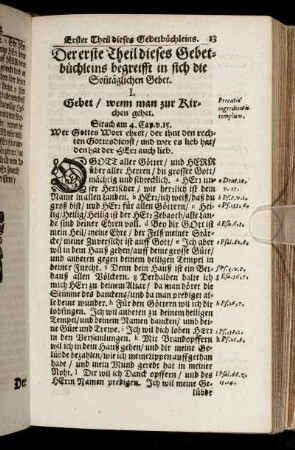 Erster Theil dieses Gebetbüchleins. 13
Der erste Theil dieses Gebet-
büchleins begreifft in sich die
Sontäglichen Gebet.
I.
Gebet / wenn man zur Kir-
chen gehet.
Precatio
ingredientis
templum.
Sirach am 4. Cap. v. 15.
Wer Gottes Wort ehret, der thut den rech-
ten Gottesdienst, und wer es lieb hat,
den hat der HErr auch lieb.
GOTT aller Götter / und HERR
über aller Herren / du grosser Gott /
mächtig und schrecklich. a HErr un-
ser Herrscher / wie herrlich ist dein
Name in allen landen. b HErr / ich weiß / daß du
groß bist / c HErr für allen Göttern / d Hei-
lig / Heilig / Heilig ist der HErr Zebaoth / alle Lan-
de sind deiner Ehren voll. Bey der GOtt ist
mein Heil / meine Ehre / der Felß meiner Stär-
cke / meine Zuversicht ist auff Gott / Ich aber
wil in dein Hauß gehen / auff deine grosse Güte /
und anbeten gegen deinem heiligen Tempel in
deiner Furcht. Denn dein Hauß ist ein Bet-
hauß allen Völckern. Derhalben halte ich
mich HErr zu deinem Altar / da man höret die
Stimme des danckens / und da man prediget al-
le deine wunder. Für den Göttern wil ich dir
lobsingen. Ich wil anbeten zu deinem heiligen
Tempel / und deinem Namen dancken / umb dei-
ne Güte und Treue. Ich wil dich loben HErr
in den Versamlungen. k Mit Brandopffern
wil ich in dein Hauß gehen / und dir meine Ge-
lübde bezahlen / wie ich meine Lippen auffgethan
habe / und mein Mund geredt hat in meiner
Noht. l Dir wil ich Danck opffern / und des
HErrn Namen predigen. Ich wil meine Ge-
lübde
Der